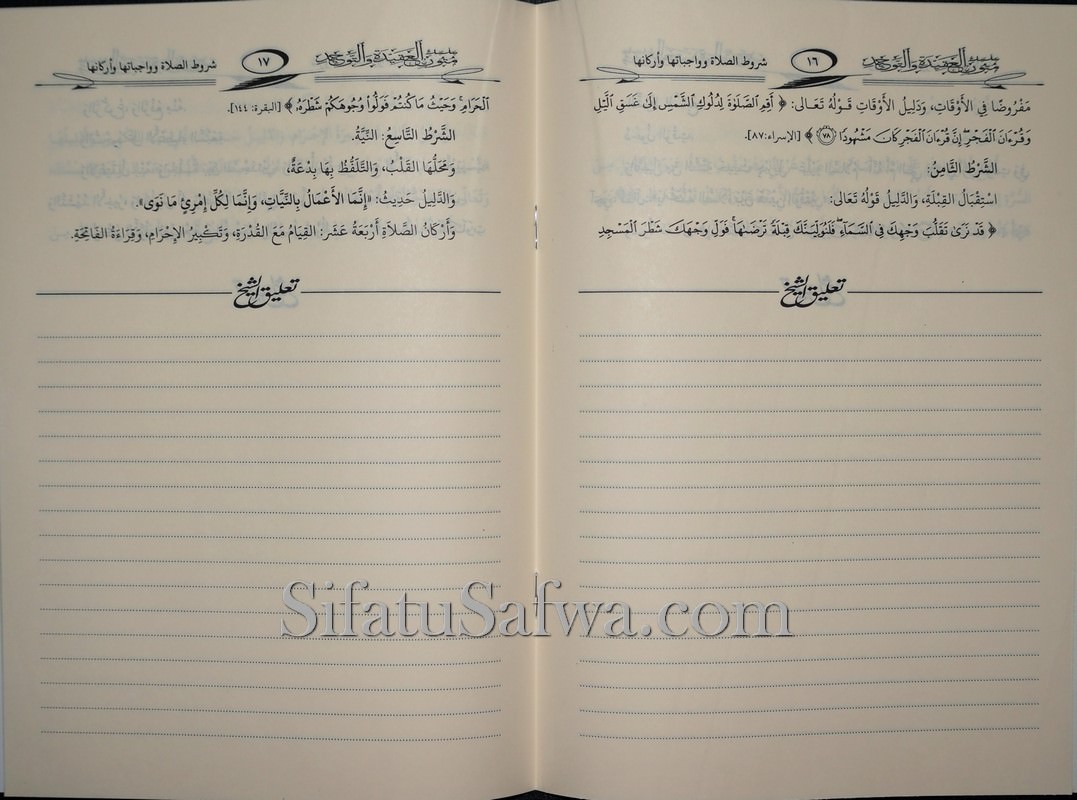 سلسلة متون العقيدة والتوحيد
١٦
شروط الصلاة وواجباتها وأركانها
مَفْرُوضًا فِي الأَوْقَاتِ، وَدَلِيلُ الأَوْقَاتِ قَوْلُهُ تَعَالَى: ﴿ أَقِمِ ٱلصَّلَوٰةَ لِدُلُوكِ ٱلشَّمْسِ إِلَىٰ غَسَقِ ٱلَّيْلِ
وَقُرْءَانَ ٱلْفَجْرِ إِنَّ قُرْءَانَ ٱلْفَجْرِ كَانَ مَشْهُودًا ٧٨ ﴾ [الإسراء:٨٧].
الشَّرْطُ الثَّامِنُ:
اسْتِقْبَالُ القِبْلَةِ، وَالدَّلِيلُ قَوْلُهُ تَعَالَى:
﴿ قَدْ نَرَىٰ تَقَلُّبَ وَجْهِكَ فِي ٱلسَّمَآءِ فَلَنُوَلِّيَنَّكَ قِبْلَةً تَرْضَىٰهَا فَوَلِّ وَجْهَكَ شَطْرَ ٱلْمَسْجِدِ
تعليق الشيخ
سلسلة متون العقيدة والتوحيد
١٧
شروط الصلاة وواجباتها وأركانها
ٱلْحَرَامِ وَحَيْثُ مَا كُنتُمْ فَوَلُّوا۟ وُجُوهَكُمْ شَطْرَهُۥ ﴾ [البقرة: ١٤٤].
الشَّرْطُ التَّاسِعُ: النِّيَّةُ.
وَمَحَلُّهَا القَلْبُ، وَالتَّلَفُّظُ بِهَا بِدْعَةٌ،
وَالدَّلِيلُ حَدِيثُ: «إِنَّمَا الأَعْمَالُ بِالنِّيَّاتِ، وَإِنَّمَا لِكُلِّ إِمْرِئٍ مَا نَوَى».
وَأَرْكَانُ الصَّلَاةِ أَرْبَعَةَ عَشَرَ: القِيَامُ مَعَ القُدْرَةِ، وَتَكْبِيرُ الإِحْرَامِ، وَقِرَاءَةُ الفَاتِحَةِ.
تعليق الشيخ
SifatuSafwa.com